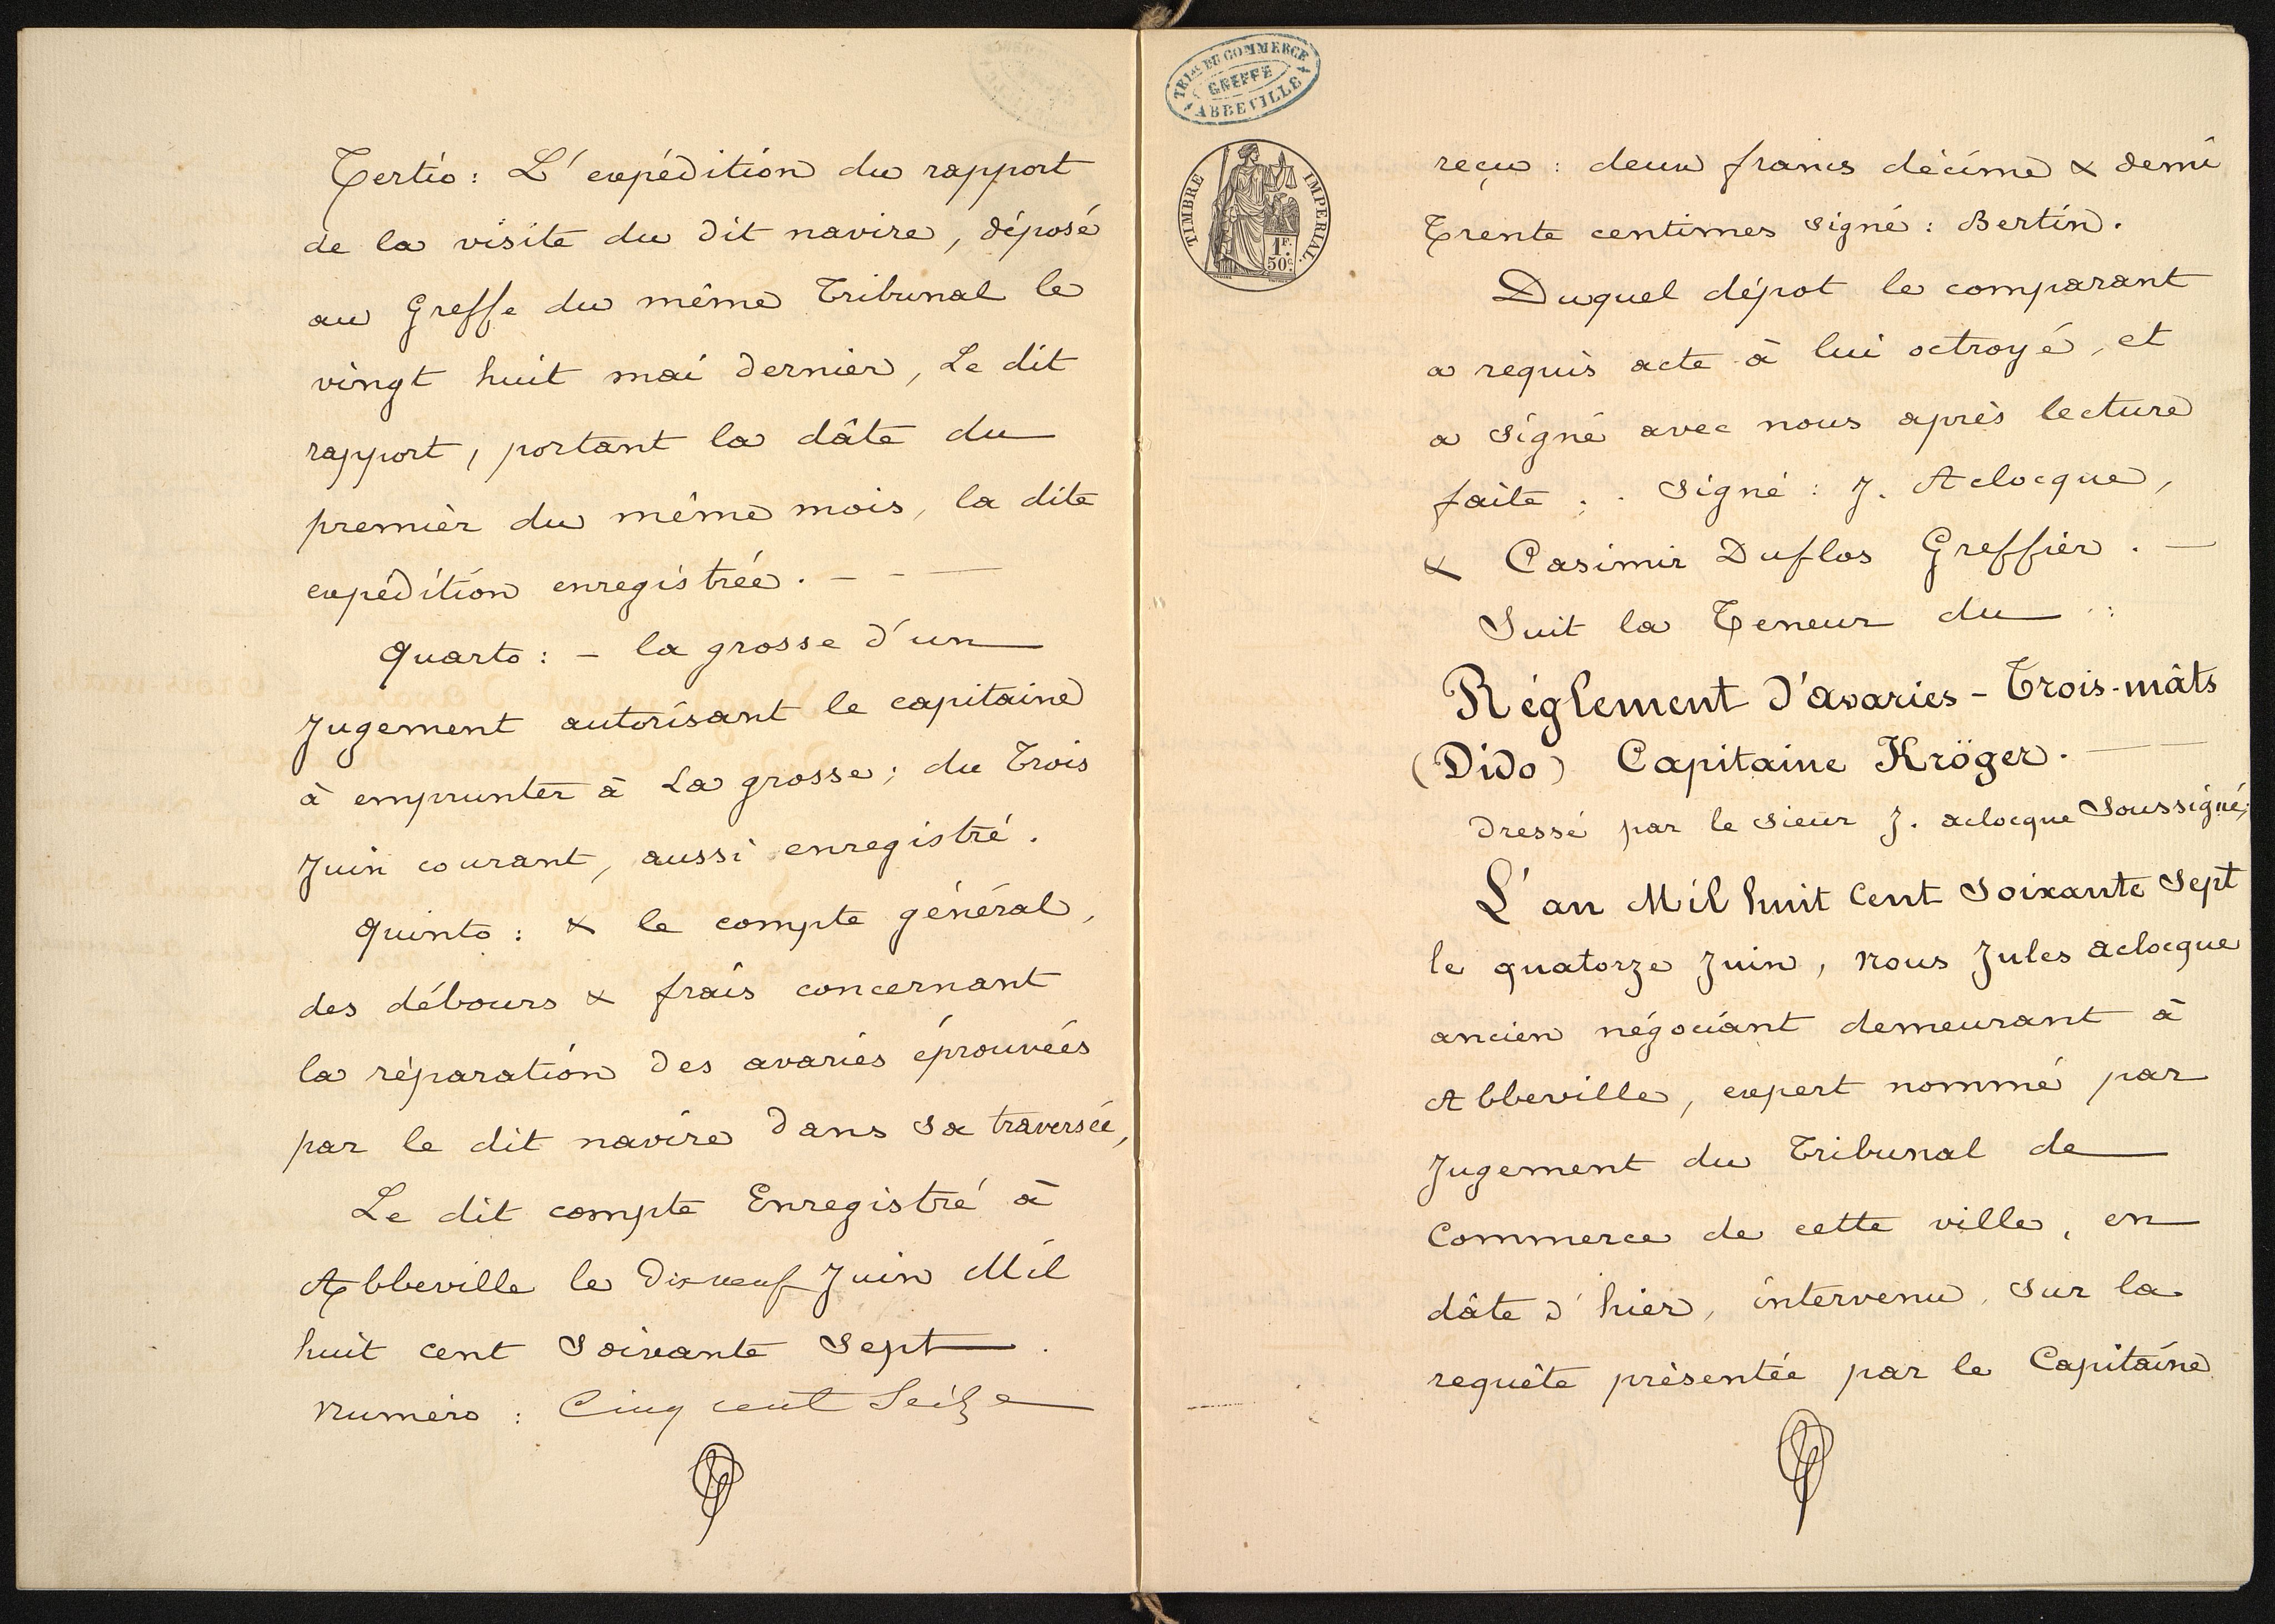 Tertio : L'expédition du rapport
de la visite du dit navire, déposé
au Greffe du même Tribunal le
vingt huit mai dernier, Le dit
rapport, portant la dâte du
premier du même mois, la dite
expédition enregistrée. - - —
Quarto : - la grosse d'un
Jugement autorisant le capitaine
à emprunter à La grosse ; du Trois
Juin courant, aussi enregistré.
Quinto : & le compte général,
des débours & frais concernant
la réparation des avaries éprouvées
par le dit navire dans sa traversée,
Le dit compte Enregistré à
Abbeville le Dix neuf Juin Mil
huit cent Soixante Sept .
Numéro : Cinq cent Seize
TRIAL DU COMMERCE
GREFFE
ABBEVILLE
TIMBRE IMPERIAL.
1F.
50c.
reçu : deux francs décime & demi
Trente centimes signé : Bertin.
Duquel dépot le comparant
a requis acte à lui octroyé, et
a signé avec nous après lecture
faite ; . Signé : J. Aclocque,
& Casimir Duflos Greffier . —
Suit la Teneur du :
Réglement d'avaries - Trois-mâts
(Dido) Capitaine Kröger. — —
Dressé par le sieur J. aclocque Soussigné;
L'an Mil huit Cent Soixante Sept
le quatorze Juin, Nous Jules aclocque
ancien négociant demeurant à
Abbeville, expert nommé par
Jugement du Tribunal de
Commerce de cette ville, en
dâte d'hier, intervenu, sur la
requête présentée par le Capitaine